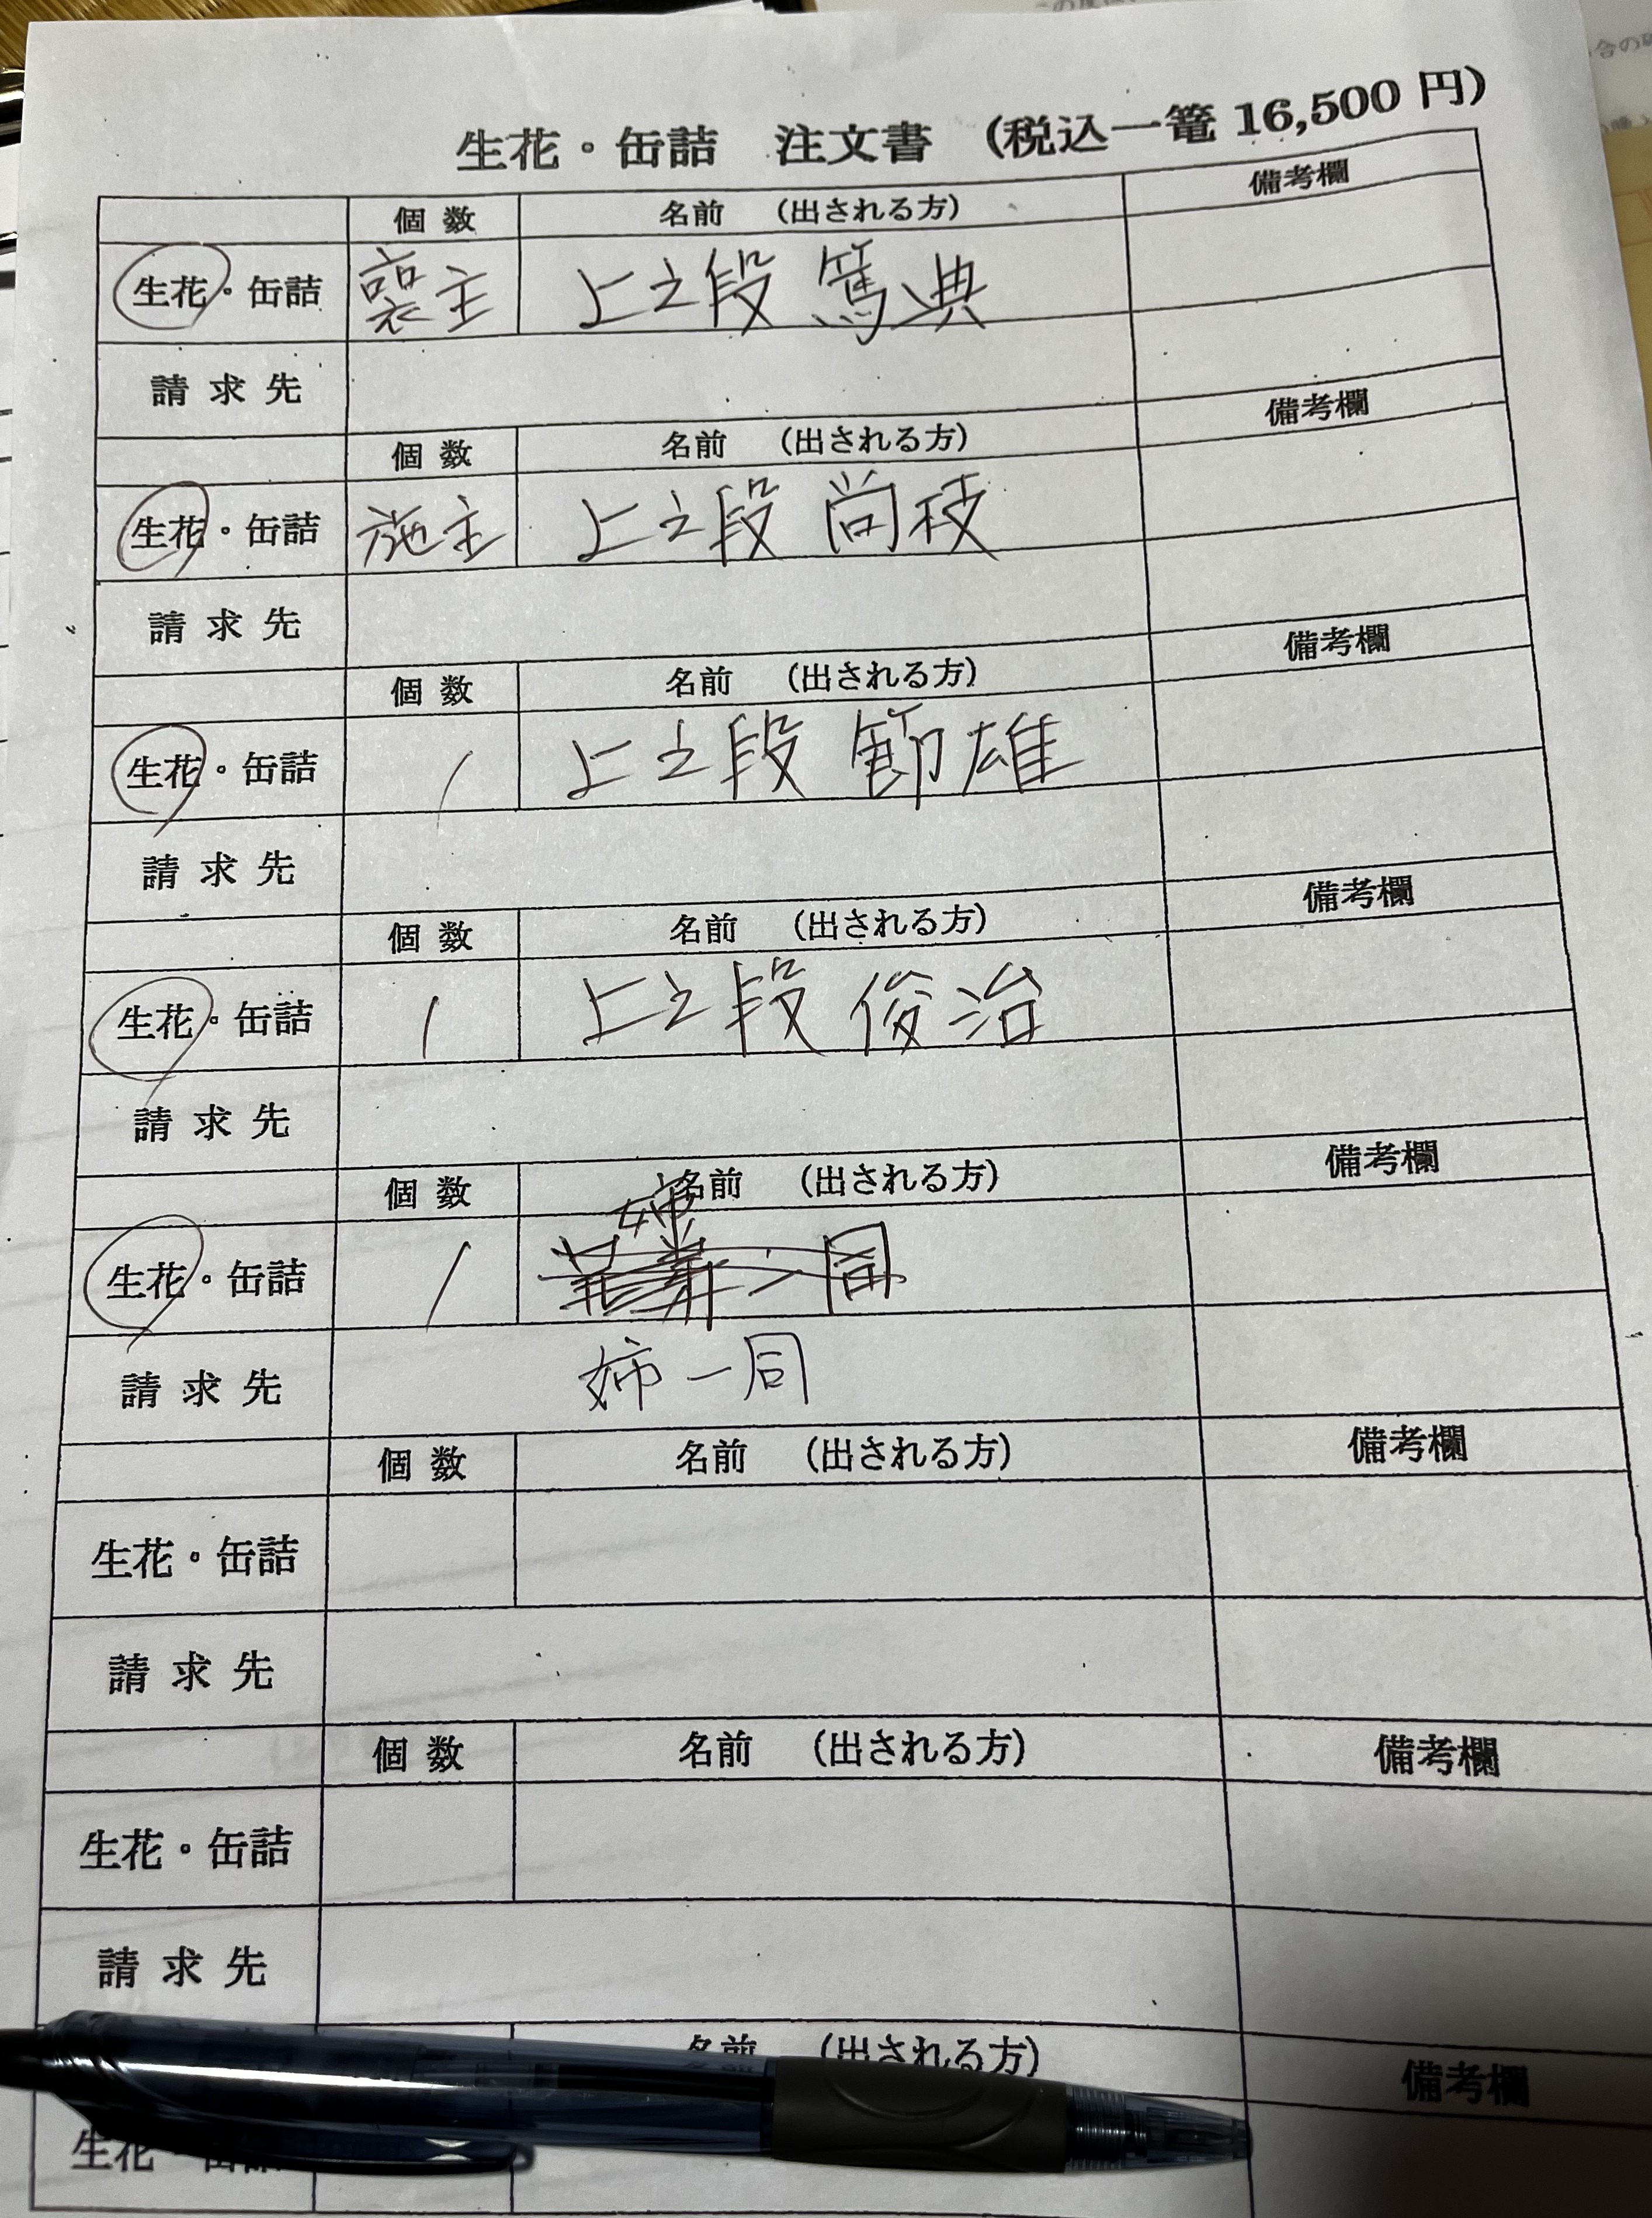 生花・缶詰 注文書 (税込一篭 16,500 円)
個 数 名前 (出される方) 備考欄
生花・缶詰 喪主 上之段 篤典
請 求 先
個 数 名前 (出される方) 備考欄
生花・缶詰 施主 上之段 尚枝
請 求 先
個 数 名前 (出される方) 備考欄
生花・缶詰 1 上之段 節雄
請 求 先
個 数 名前 (出される方) 備考欄
生花・缶詰 1 上之段 俊治
請 求 先
個 数 名前 (出される方) 備考欄
姉
生花・缶詰 1 一同
請 求 先 姉一同
個 数 名前 (出される方) 備考欄
生花・缶詰
請 求 先
個 数 名前 (出される方) 備考欄
生花・缶詰
請 求 先
名前 (出される方) 備考欄
生花・缶詰